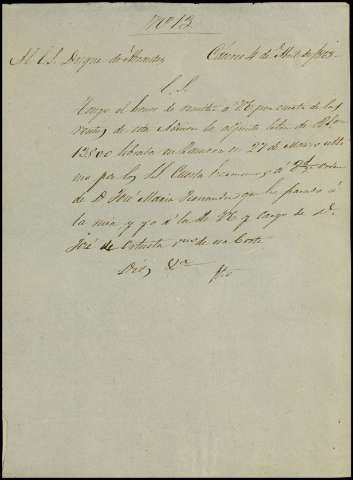 Nº 13
Al E. S. Duque de
Cáceres 4 de Abril de
E. S.
Tengo el honor de remitir a VE por cuenta de las
rentas de esta Admon la adjunta letra de Rs von
12500 librada en Zamora en 27 de Marzo ulti
mo por los SS. Cuesta hermanos y á 8 d/v orden
de D. José Maria Fernandez que ha pasado á
la mia y yo á la de VE y cargo de
José de Ortueta de esa Corte
Dios &a